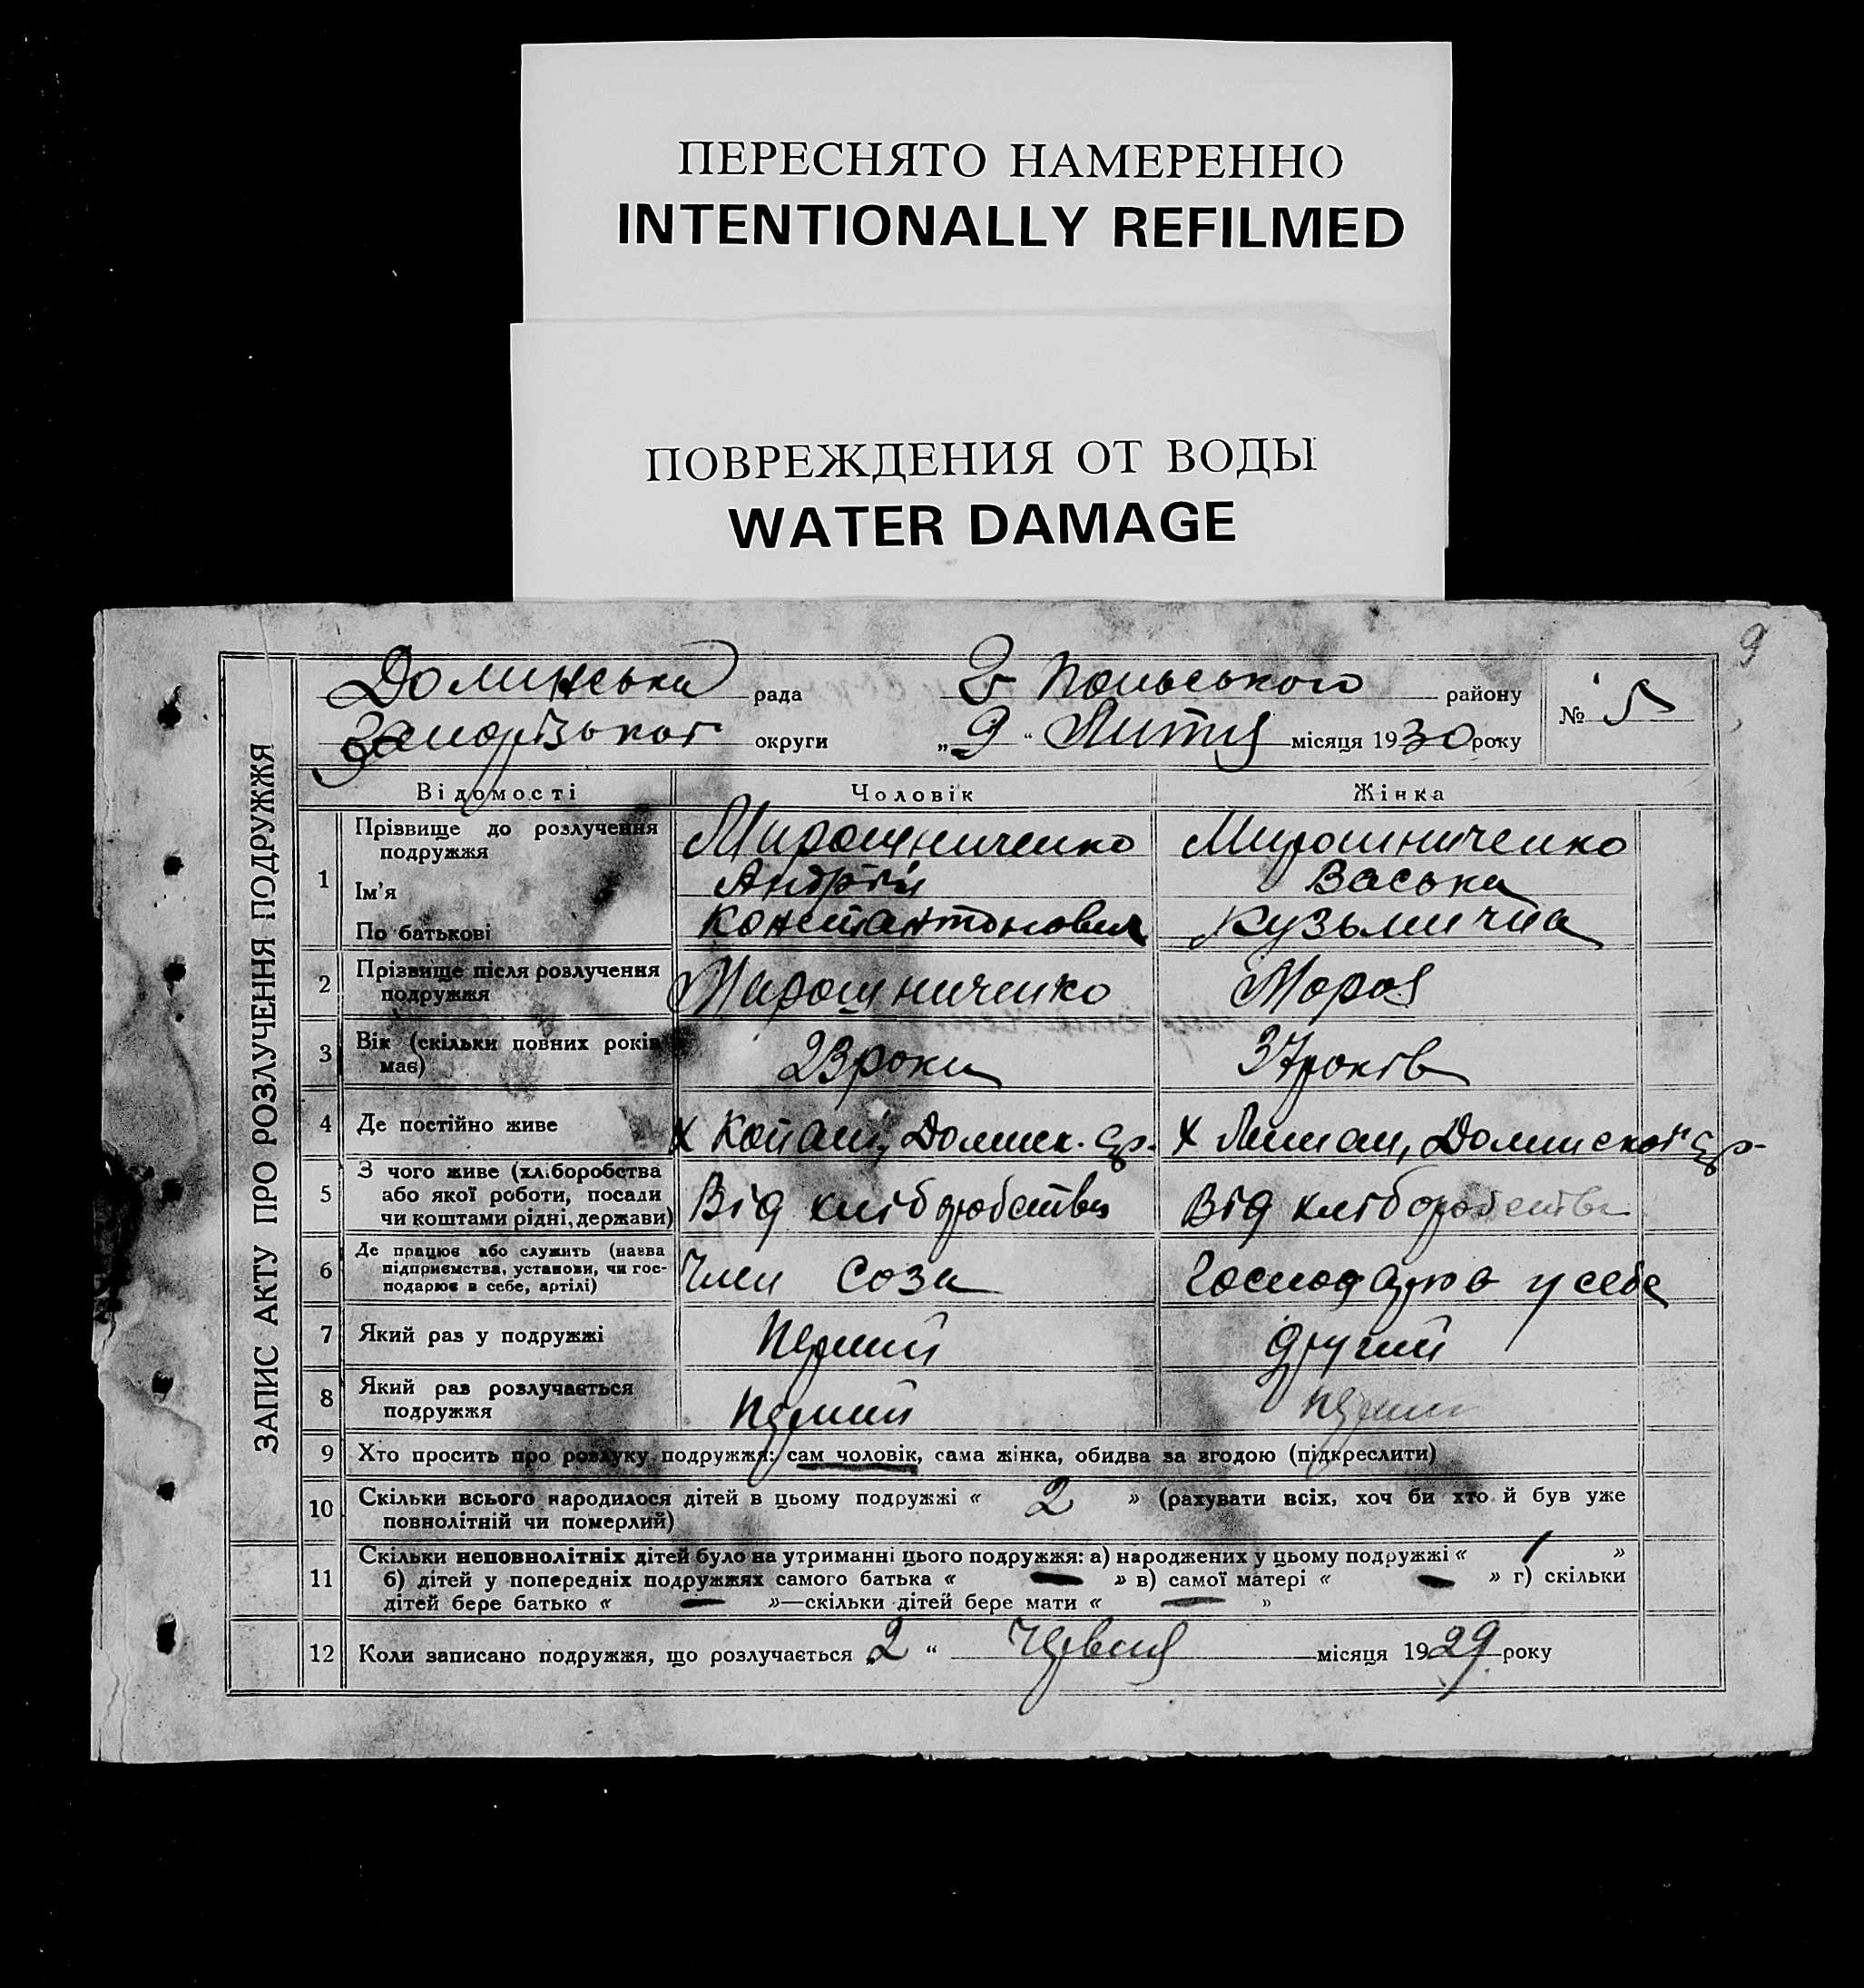 ПЕРЕСНЯТО НАМЕРЕННО
INTENTIONALLY REFILMED
ПОВРЕЖДЕНИЯ ОТ ВОДЫ
WATER DAMAGE
9
ЗАПИС АКТУ ПРО РОЗЛУЧЕННЯ ПОДРУЖЖЯ
Долинська рада Г Польського району
№ 5
округи „9“ Лютня місяця 1930 року
Відомості Чоловік Жінка
1 Прізвище до розлучення подружжя Мирошниченко Мирошниченко
Ім'я Андрій Васька
По батькові Константинович Кузьмична
2 Прізвище після розлучення подружжя Мирошниченко Мороз
3 Вік (скільки повних років має) 23 роки 37 років
4 Де постійно живе х Копані, Долинск. с/р. х Лиман, Долинской с/р.
5 З чого живе (хліборобства або якої роботи, посади чи коштами рідні, держави) Від хліборобства Від хліборобства
6 Де працює або служить (назва підприємства, установи, чи господарює в себе, артілі) Член Соза Господарює у себе
7 Який раз у подружжі Перший Другий
8 Який раз розлучається подружжя Перший Перший
9 Хто просить про розлуку подружжя: сам чоловік, сама жінка, обидва за згодою (підкреслити)
10 Скільки всього народилося дітей в цьому подружжі « 2 » (рахувати всіх, хоч би хто й був уже
повнолітній чи померлий)
11 Скільки неповнолітніх дітей було на утриманні цього подружжя: а) народжених у цьому подружжі « 1 »
б) дітей у попередніх подружжях самого батька « — » в) самої матері « — » г) скільки
дітей бере батько « — »—скільки дітей бере мати « — »
12 Коли записано подружжя, що розлучається „2“ Червня місяця 1929 року